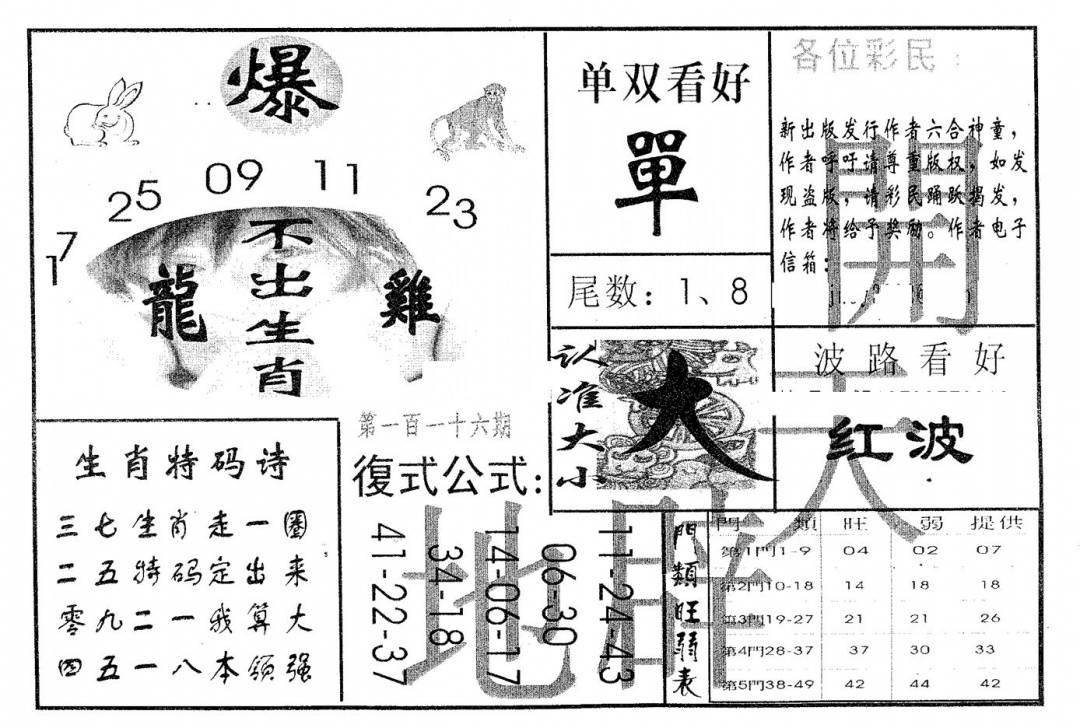 爆
17 25 09 11 23
不出生肖
龍 雞
生肖特码诗
三七生肖走一圈
二五特码定出来
零九二一我算大
四五一八本领强
第一百一十六期
復式公式:
41-22-37
34-18
14-06-17
06-30
11-24-43
单双看好
單
尾数: 1、8
认准大小
大
各位彩民:
新出版发行作者六合神童,
作者呼吁请尊重版权,如发
现盗版,请彩民踊跃揭发,
作者将给予奖励。作者电子
信箱:
波路看好
红波
開天闢地
門類旺弱表
門類 旺 弱 提供
第1門1-9 04 02 07
第2門10-18 14 18 18
第3門19-27 21 21 26
第4門28-37 37 30 33
第5門38-49 42 44 42